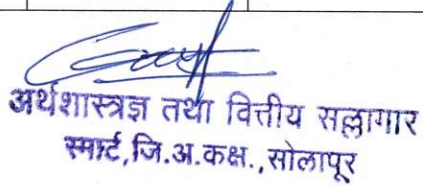 अर्थशास्त्रज्ञ तथा वित्तीय सल्लागार
स्मार्ट,जि.अ.कक्ष.,सोलापूर